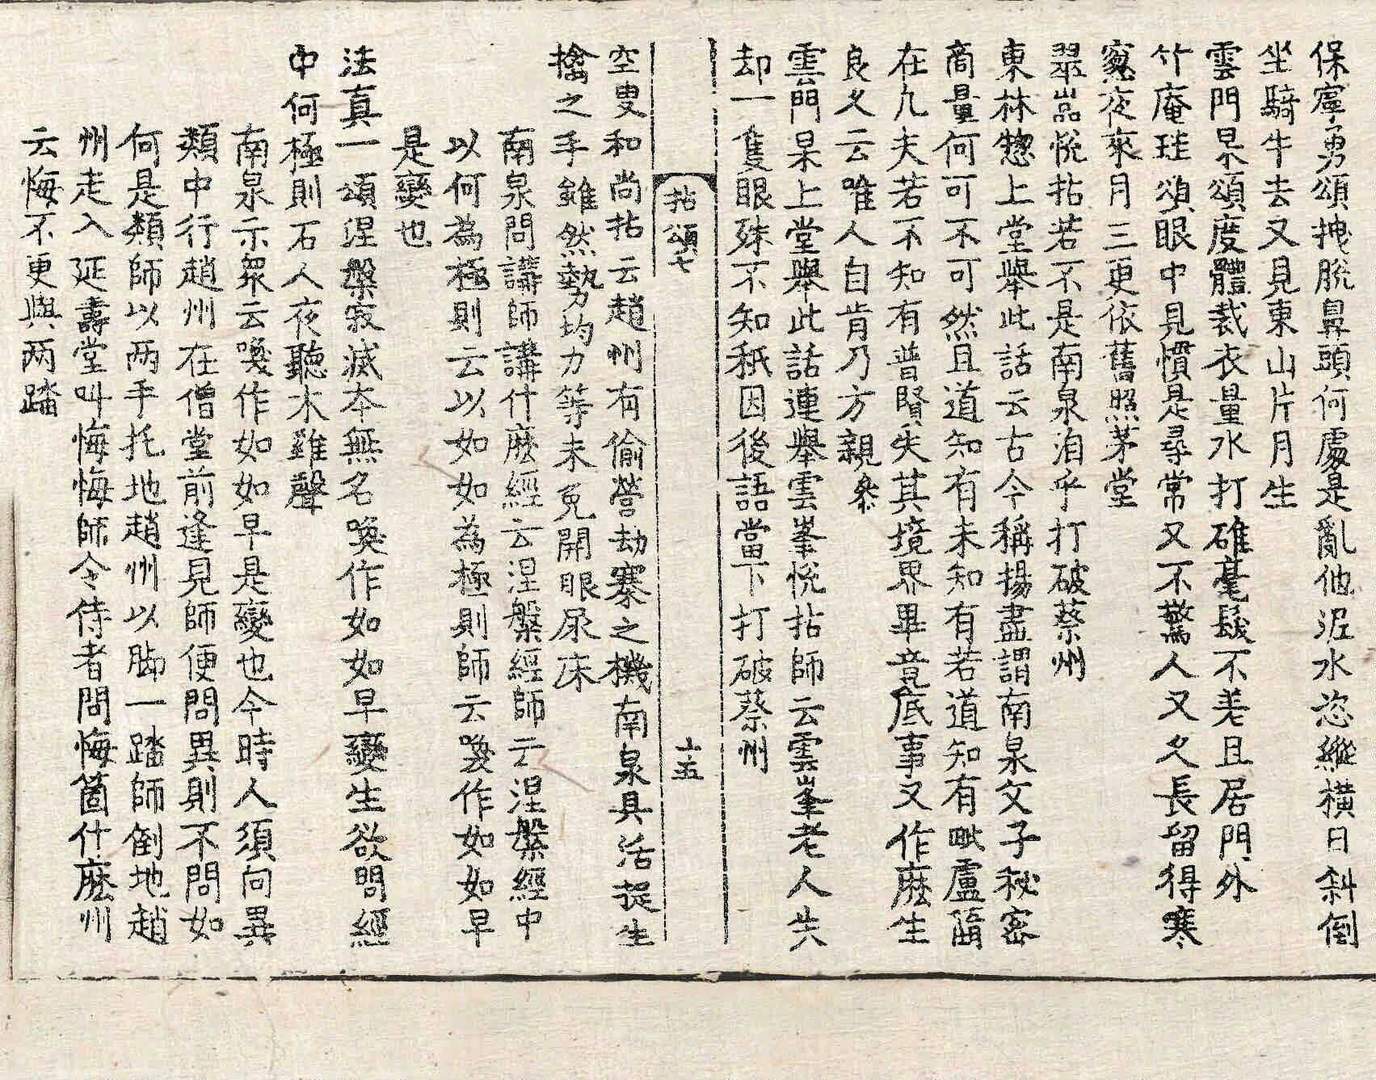 保寧勇頌拽脫鼻頭何處是亂他泥水恣縱橫日斜倒
坐騎牛去又見東山片月生
雲門杲頌度體裁衣量水打碓毫髮不差且居門外
竹庵珪頌眼中見慣是尋常又不驚人又久長留得寒
窻夜來月三更依舊照茅堂
翠嵓悅拈若不是南泉洎乎打破蔡州
東林惣上堂舉此話云古今稱揚盡謂南泉父子秘密
商量何可不可然且道知有未知有若道知有毗盧
在凡夫若不知有普賢失其境界畢竟底事又作麽生
良久云唯人自肯乃方親叅
雲門杲上堂舉此話連舉雲峯悅拈師云雲峯老人失
却一隻眼殊不知秖因後語當下打破蔡州
拈頌七 五
空叟和尚拈云趙州有偷營劫寨之機南泉具活捉生
擒之手雖然勢均力等未免開眼尿床
南泉問講師講什麽經云涅槃經師云涅槃經中
以何為極則云以如如為極則師云喚作如如早
是變也
法真一頌涅槃寂滅夲無名喚作如如早變生欲問經
中何極則石人夜聽木雞聲
南泉示衆云喚作如如早是變也今時人須向異
類中行趙州在僧堂前逢見師便問異則不問如
何是類師以两手托地趙州以脚一踏師倒地趙
州走入延壽堂叫悔悔師令侍者問悔箇什麽州
云悔不更與两踏